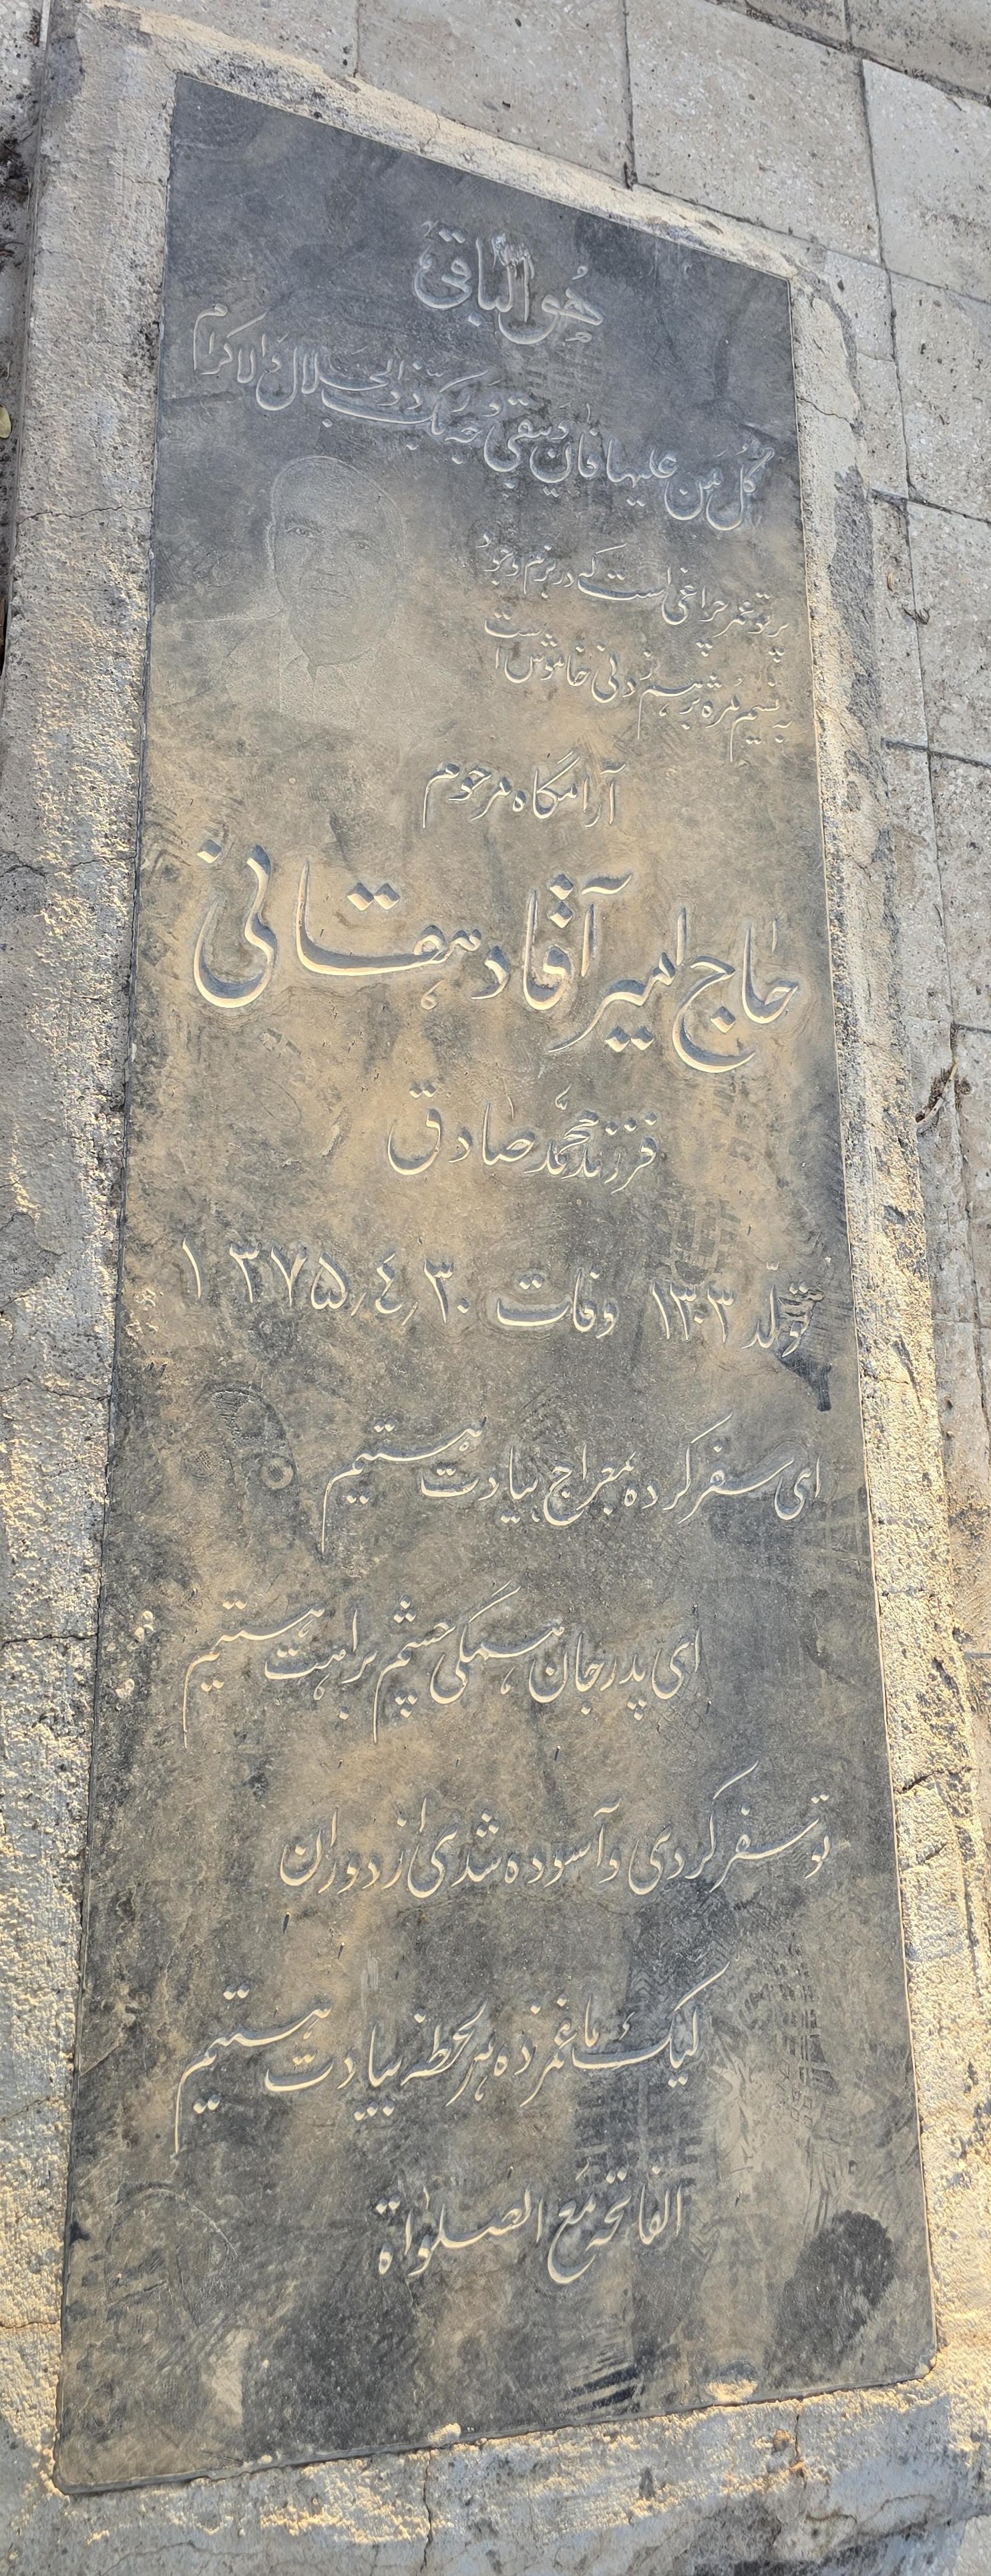 هو الباقی
کل من علیها فان و یبقی وجه ربک ذو الجلال و الاکرام
پرتو عمر چراغی است که در بزم وجود
به نسیم مژه بر هم زدنی خاموش است
آرامگاه مرحوم
حاج امیر آقا دهقانی
فرزند محمد صادق
تولد ۱۳۰۳ وفات ۱۳۷۵/۴/۳۰
ای سفر کرده بمعراج بیادت هستیم
ای پدر جان همگی چشم براهت هستیم
تو سفر کردی و آسوده شدی از دوران
لیک ما غمزده هر لحظه بیادت هستیم
الفاتحه مع الصلواة